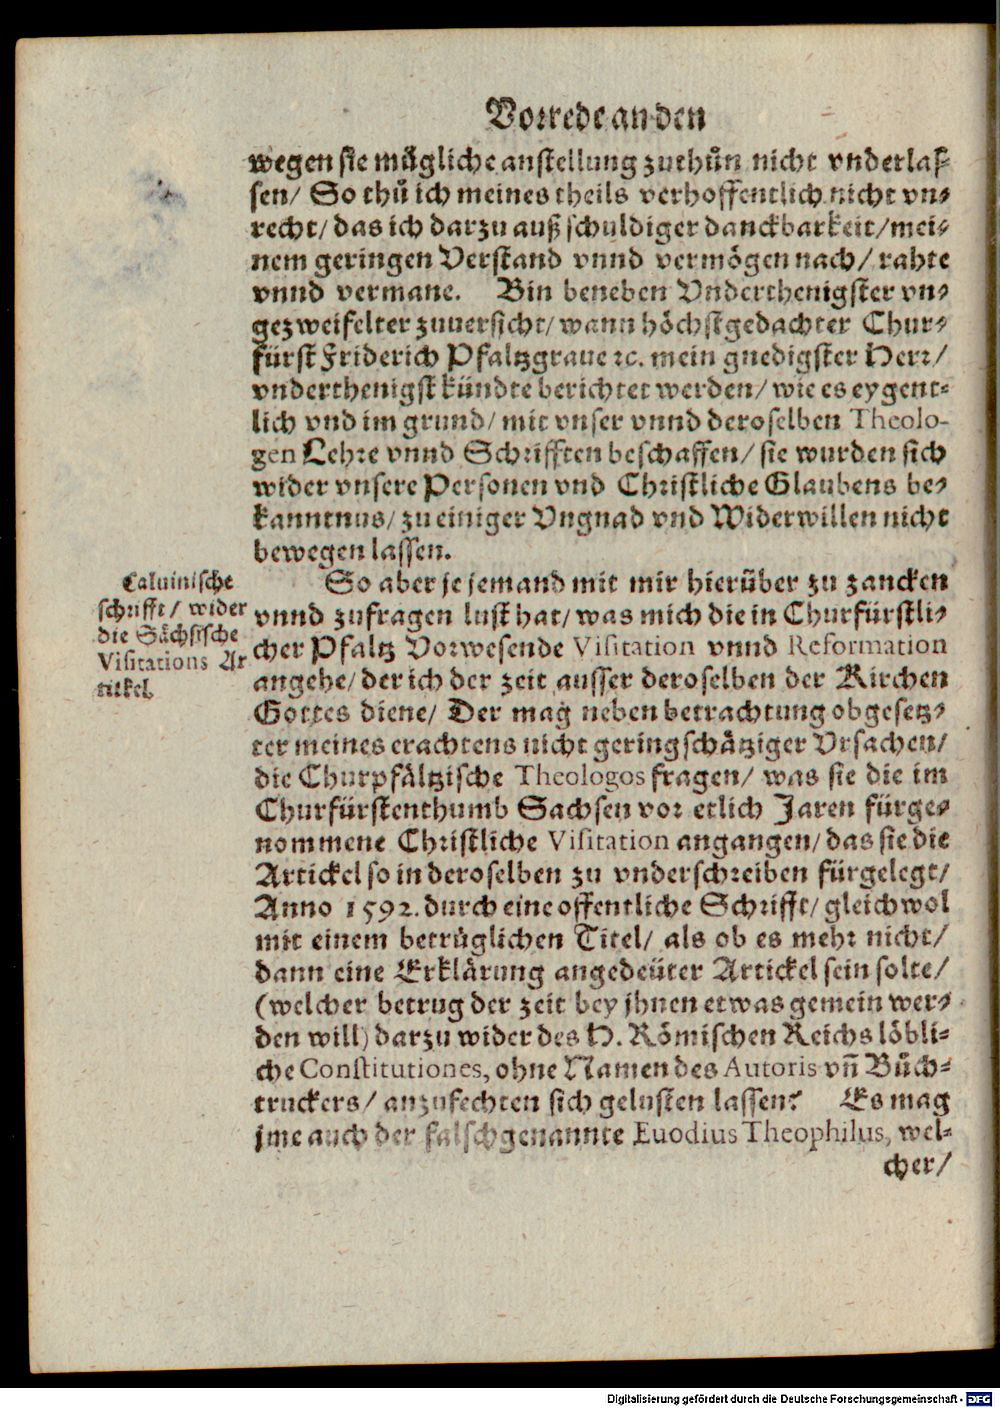 Vorrede an den
wegen sie mügliche anstellung zuthůn nicht vnderlas-
sen/ So thů ich meines theils verhoffentlich nicht vn-
recht/ das ich darzu auß schuldiger danckbarkeit/ mei-
nem geringen Verstand vnnd vermögen nach/ rahte
vnnd vermane. Bin beneben Vnderthenigster vn-
gezweifelter zuuersicht/ wann höchstgedachter Chur-
fürst Friderich Pfaltzgraue ꝛc. mein gnedigster Herr/
vnderthenigst kündte berichtet werden/ wie es eygent-
lich vnd im grund/ mit vnser vnnd deroselben Theolo-
gen Lehre vnnd Schrifften beschaffen/ sie wurden sich
wider vnsere Personen vnd Christliche Glaubens be-
kanntnus/ zu einiger Vngnad vnd Widerwillen nicht
bewegen lassen.
Caluinische
schrifft/ wider
die Sächsische
Visitations Ar
tickel.
So aber je jemand mit mir hierüber zu zancken
vnnd zufragen lust hat/ was mich die in Churfürstli-
cher Pfaltz Vorwesende Visitation vnnd Reformation
angehe/ der ich der zeit ausser deroselben der Kirchen
Gottes diene/ Der mag neben betrachtung obgesetz-
ter meines erachtens nicht geringschätziger Vrsachen/
die Churpfältzische Theologos fragen/ was sie die im
Churfürstenthumb Sachsen vor etlich Jaren fürge-
nommene Christliche Visitation angangen/ das sie die
Artickel so in deroselben zu vnderschreiben fürgelegt/
Anno 1592. durch eine offentliche Schrifft/ gleichwol
mit einem betrüglichen Titel/ als ob es mehr nicht/
dann eine Erklärung angedeüter Artickel sein solte/
(welcher betrug der zeit bey jhnen etwas gemein wer-
den will) darzu wider des H. Römischen Reichs löbli-
che Constitutiones, ohne Namen des Autoris vñ Bůch-
truckers/ anzufechten sich gelusten lassen? Es mag
jme auch der falschgenannte Euodius Theophilus, wel-
cher/
Digitalisierung gefördert durch die Deutsche Forschungsgemeinschaft - DFG